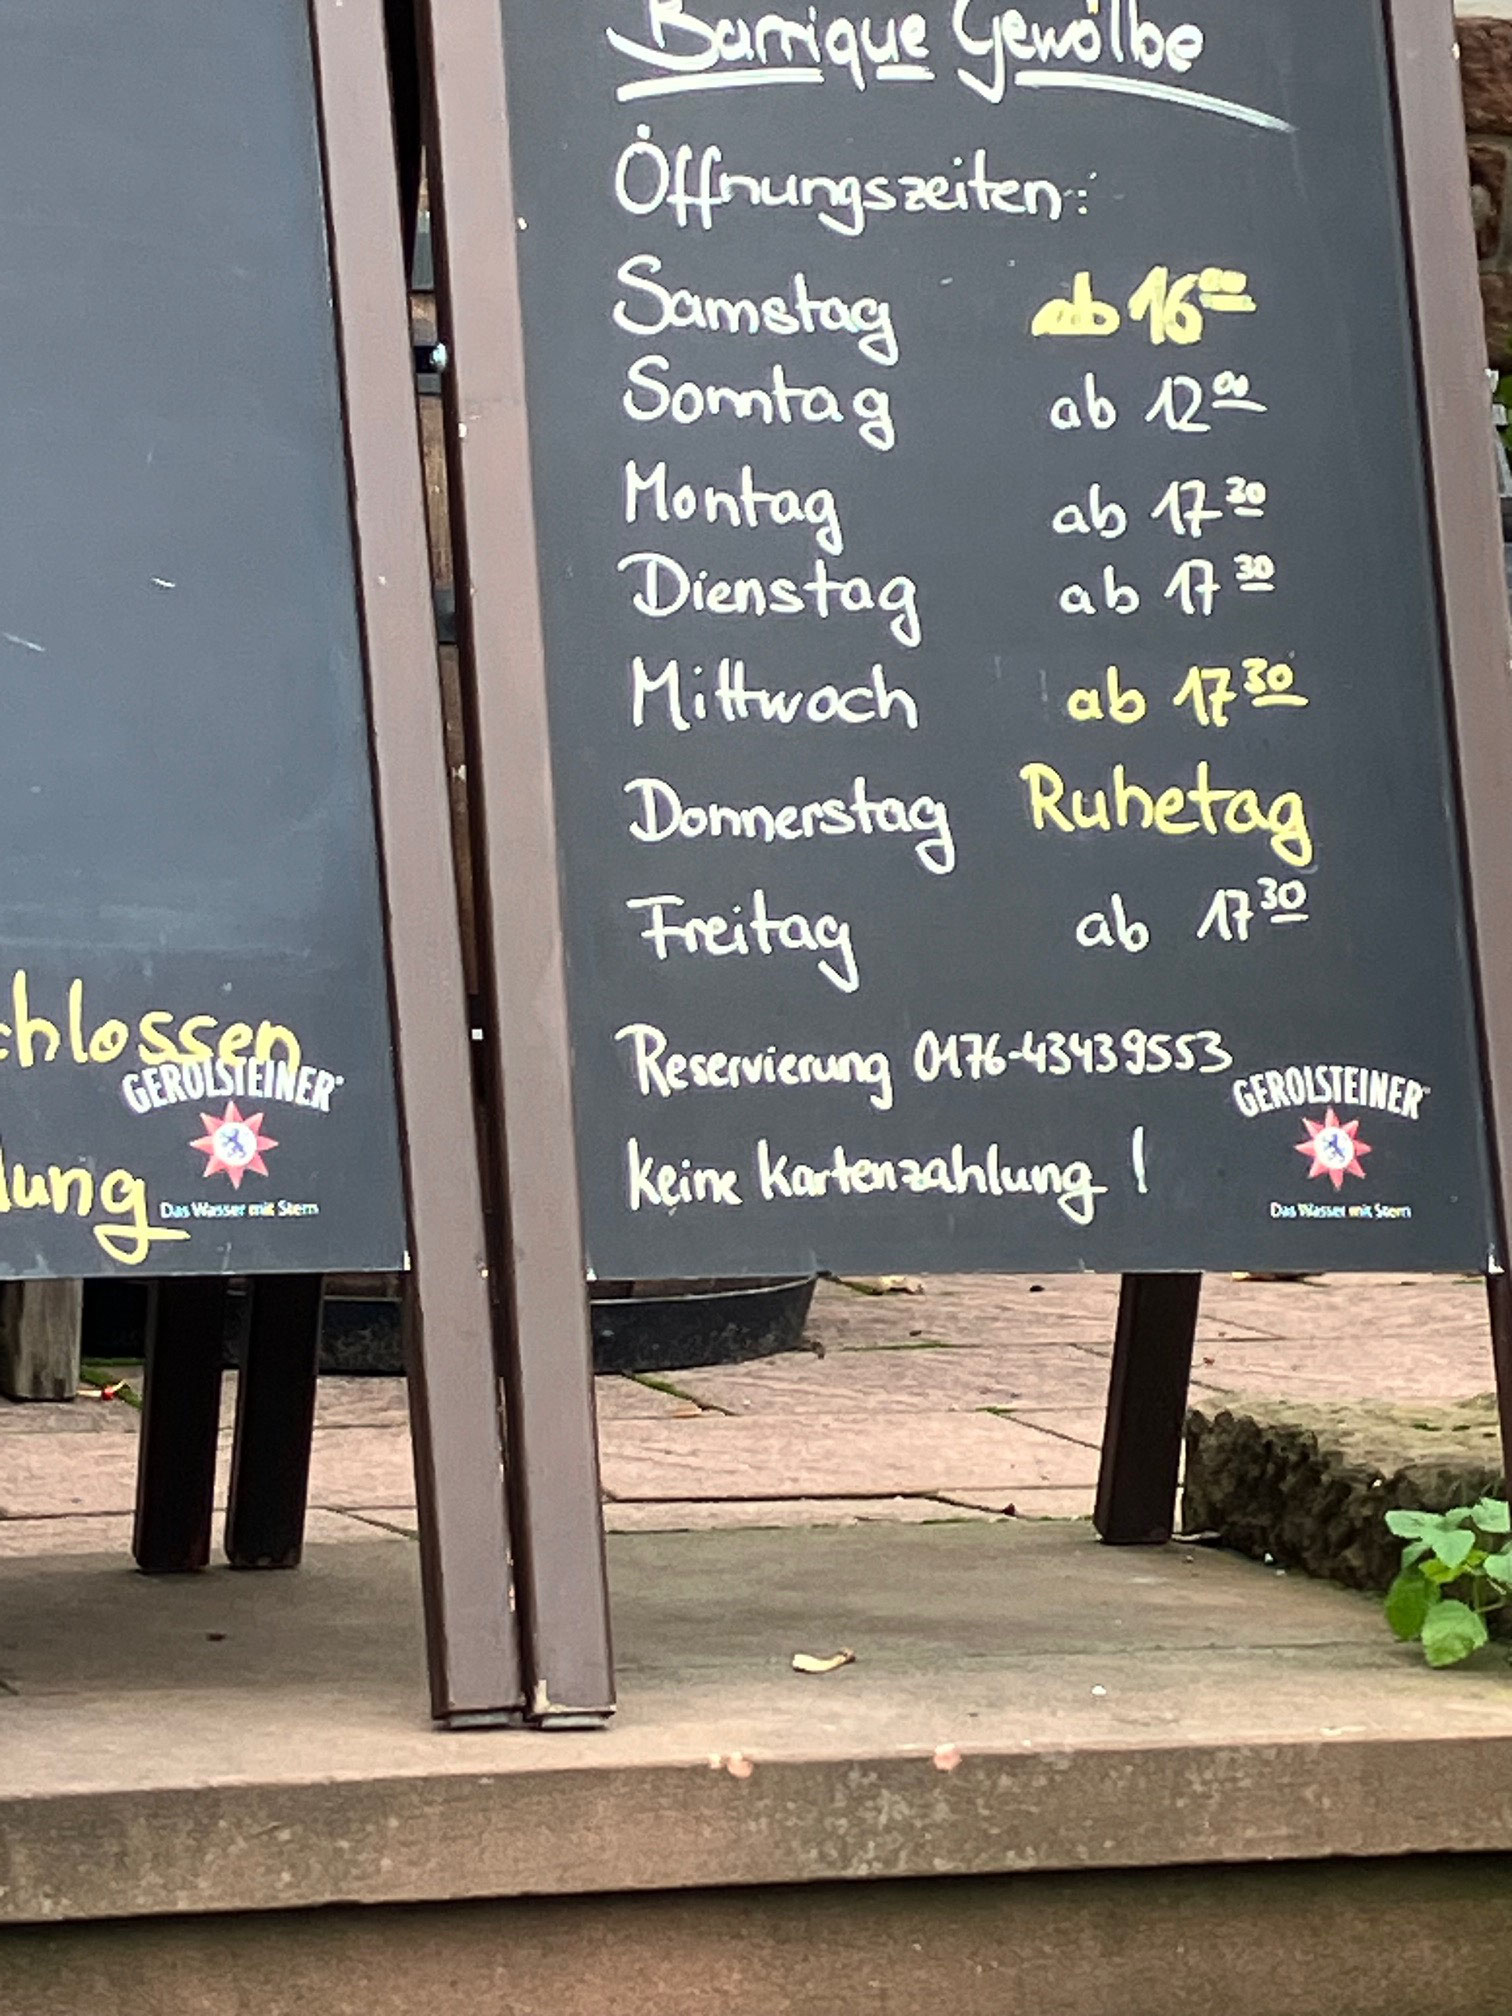 chlossen
GEROLSTEINER
lung
Das Wasser mit Stern
Barrique Gewölbe
Öffnungszeiten:
Samstag ab 16 00
Sonntag ab 12 00
Montag ab 17 30
Dienstag ab 17 30
Mittwoch ab 17 30
Donnerstag Ruhetag
Freitag ab 17 30
Reservierung 0176-43439553
keine Kartenzahlung !
GEROLSTEINER
Das Wasser mit Stern